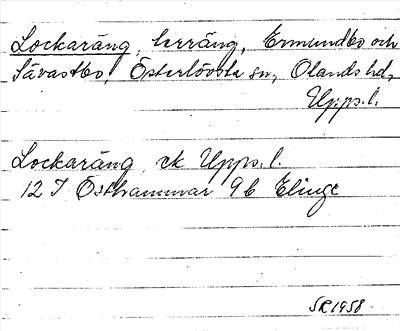 Lockaräng, herräng, Ermundbo och
Sävastbo, Österlövsta sn, Olands hd,
Upps. l.
Lockaräng ek Upps. l.
12 I Östhammar 9b Elinge
SR 1958